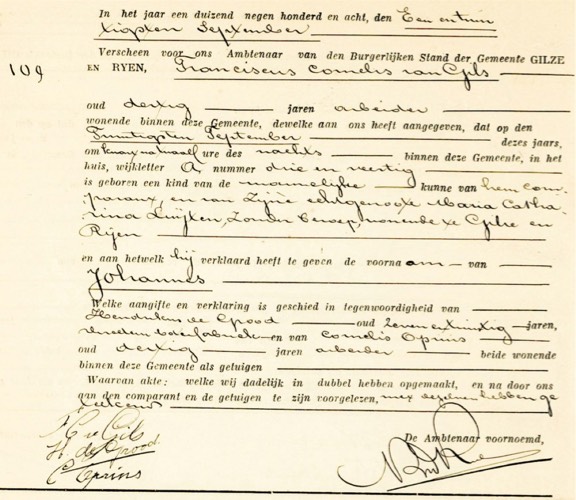 In het jaar een duizend negen honderd en acht, den Een en twin
tigsten September
Verscheen voor ons Ambtenaar van den Burgerlijken Stand der Gemeente GILZE
109 EN RYEN, Franciscus Cornelis van Gils
oud dertig jaren arbeider
wonende binnen deze Gemeente, dewelke aan ons heeft aangegeven, dat op den
Twintigsten September dezes jaars,
om kwart na twaalf ure des nachts binnen deze Gemeente, in het
huis, wijkletter A, nummer drie en veertig
is geboren een kind van de mannelijke kunne van hem com-
parant, en van zijne echtgenoote Maria Catha-
rina Luijten, zonder beroep, wonende te Gilze en
Rijen
en aan hetwelk hij verklaard heeft te geven de voorna am van
Johannes
Welke aangifte en verklaring is geschied in tegenwoordigheid van
Hendrikus de Grood oud zeven en twintig jaren,
en van Cornelis Oprins
oud dertig jaren arbeider beide wonende
binnen deze Gemeente als getuigen
Waarvan akte: welke wij dadelijk in dubbel hebben opgemaakt, en na door ons
aan den comparant en de getuigen te zijn voorgelezen, met dezelven hebben ge
teekend
F C v Gils
H. de Grood
C Oprins
De Ambtenaar voornoemd,